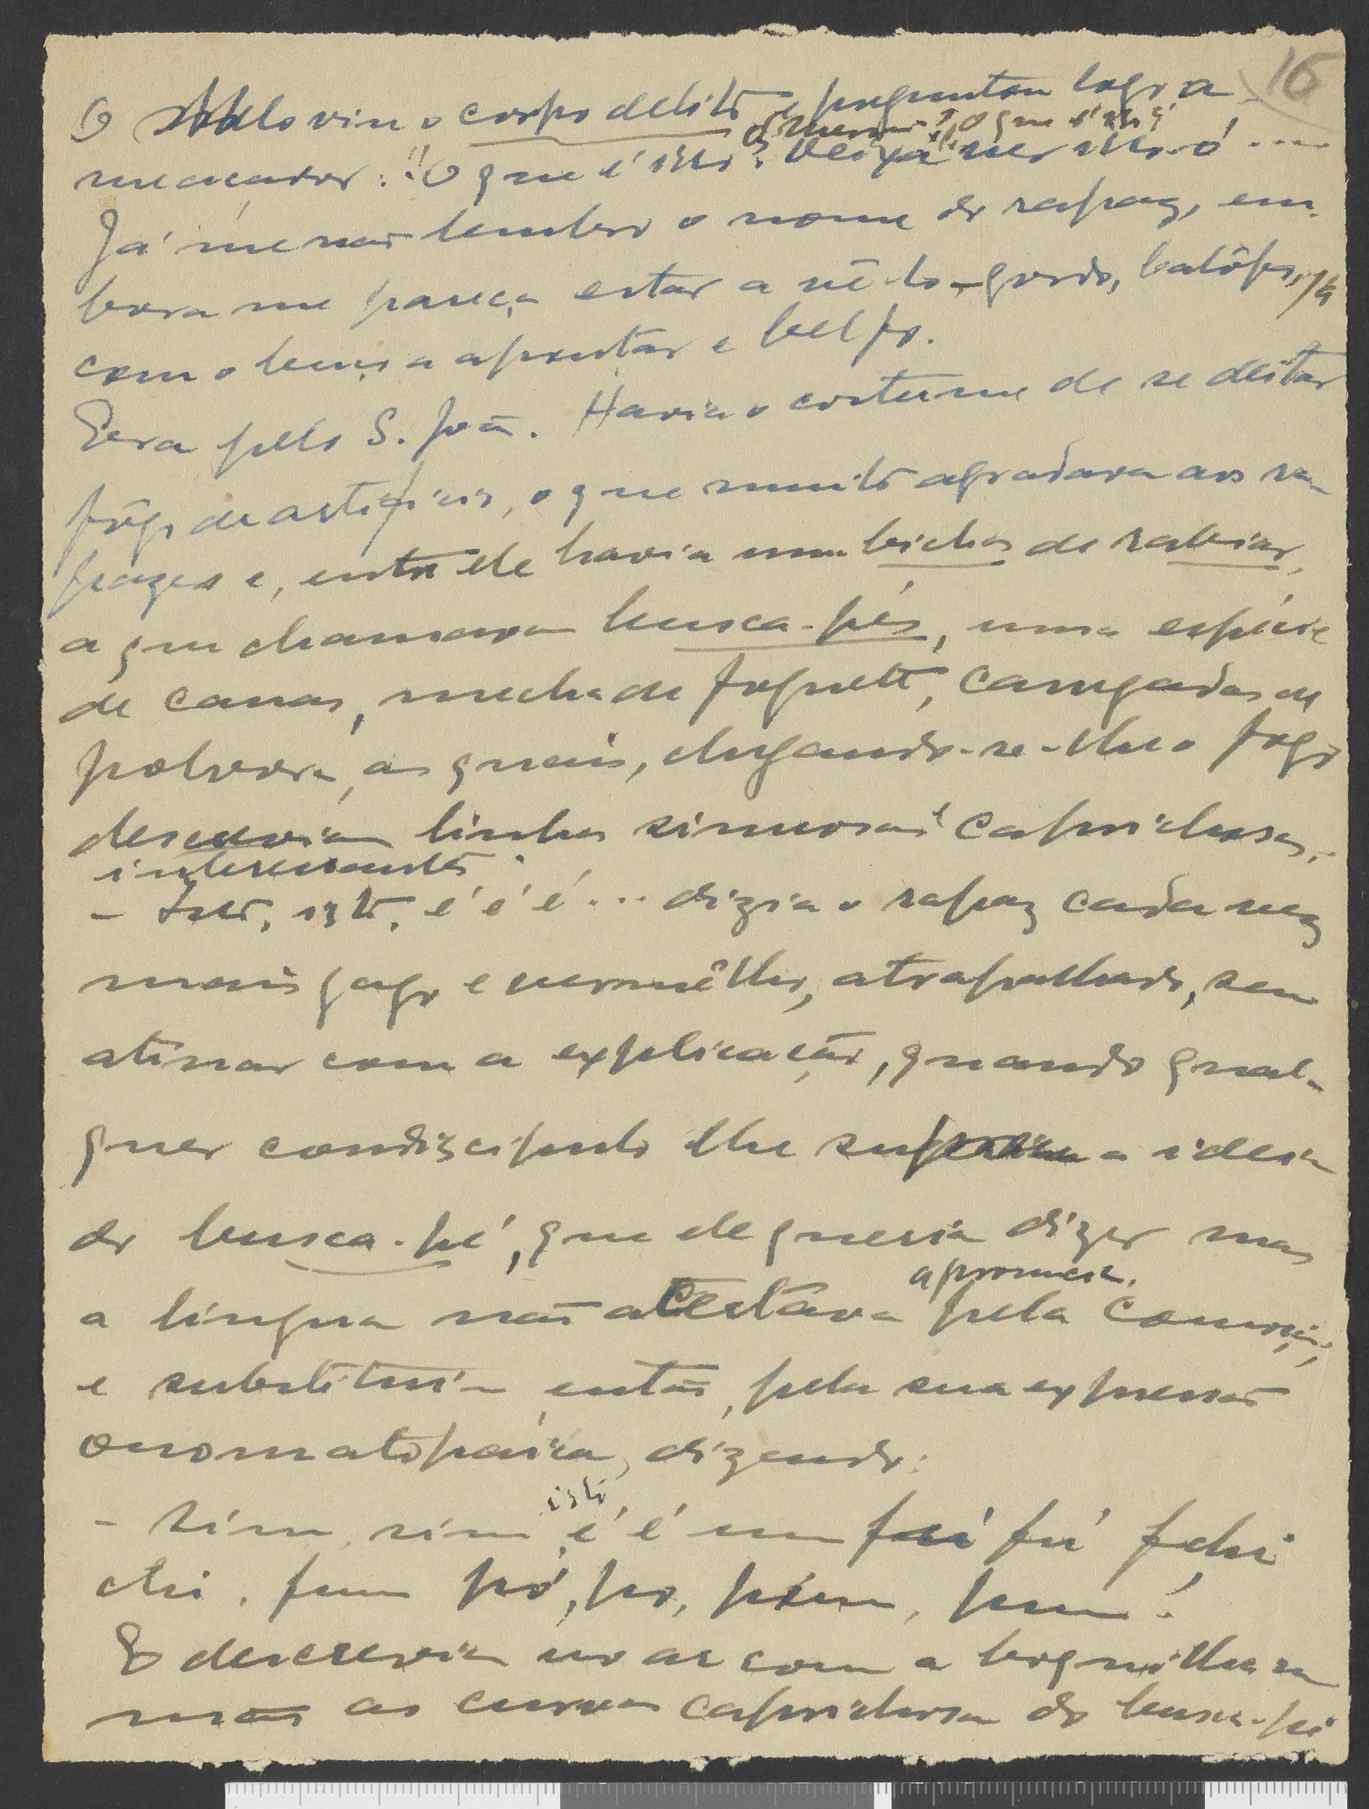 16
O viu o corpo delito e preguntou logo a
ó menino! o que é isso?
meaçador: "O que é isso? Deixa ver isso. ó ....
Já me não lembro o nome do rapaz, em-
bora me pareça estar a vê-lo gordo, balôfo,
com o a apontar e belfo.
Era pelo S. João. Havia o costume de se deitar
fôgo de artificio, o que muito agradava aos ra-
pazes e, entre ele havia umas bichas de rabiar,
a que chamavam busca-pés, uma espécie
de canas, mecha de foguete, carregadas de
polvora, as quais, chegando-se-lhe o fogo
descreviam linhas sinuosas e caprichosas,
interessantes.
- Isto, isto, é é é ... dizia o rapaz cada vez
mais gago e vermêlho, atrapalhado, sem
atinar com a explicação, quando qual-
quer condiscipulo lhe a ideia
do busca-pé, que ele queria dizer mas
a promessa.
a lingua não acertava pela comoção,
e substituia então, pela sua expressão
onomatopaica, dizendo:
isto
- Sim, sim, é é um fú fchi
chi, fum pó, po, pum, pum!
E descrevia no ar com a borquilha na
mão as curvas caprichosas do busca-pé